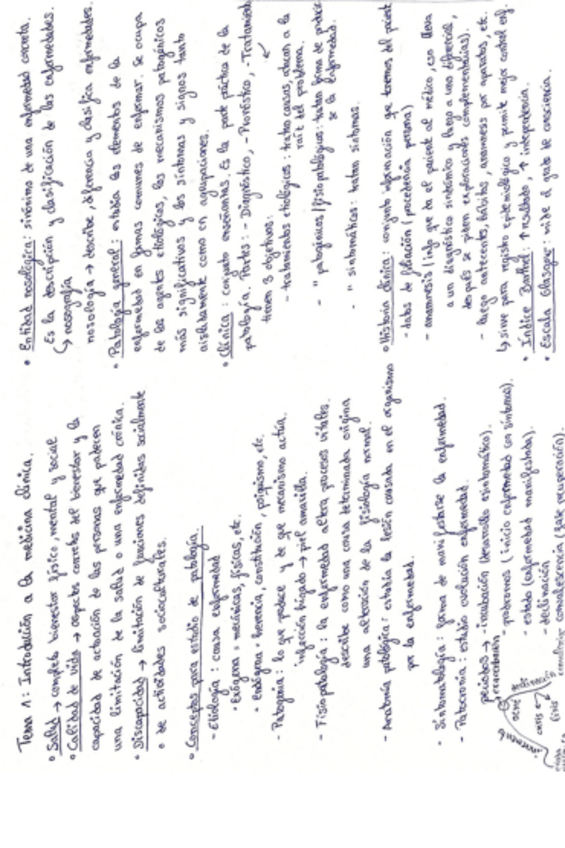 Tema 1: Introducción a la medicina clínica.
• Salud → completo bienestar físico, mental y social
• Calidad de vida → aspectos concretos del bienestar y la
capacidad de actuación de las personas que padecen
una limitación de la salud o una enfermedad crónica.
• Discapacidad → limitación de funciones definidas socialmente
o de actividades socioculturales.
• Conceptos para estudio de patología
- Etiología: causa enfermedad
• Exógena: mecánicas, físicas, etc.
• Endógena: herencia, constitución, psiquismo, etc.
- Patogenia: lo que produce y de que mecanismo actúa.
infección hígado → piel amarilla.
- Fisiopatología: la enfermedad altera procesos vitales.
describe como una causa determinada origina
una alteración de la fisiología normal.
- Anatomía patológica: estudia la lesión causada en el organismo
por la enfermedad.
- Sintomatología: forma de manifestarse la enfermedad.
- Patocronia: estudio evolución enfermedad.
períodos → - incubación (desarrollo asintomático).
- pródromos (inicio enfermedad con síntomas).
- estado (enfermedad manifestada).
- declinación
- convalescencia (fase recuperación).
incremento
acmé
declinación
crisis
lisis
• Entidad nosológica: sinónimo de una enfermedad concreta.
Es la descripción y clasificación de las enfermedades.
↳ nosografía
nosología → describe, diferencia y clasifica enfermedades.
• Patología general: estudia los elementos de la
enfermedad en formas comunes de enfermar. Se ocupa
de los agentes etiológicos, los mecanismos patogénicos
más significativos y los síntomas y signos tanto
aisladamente como en agrupaciones.
• Clínica: conjunto enseñanzas. Es la parte práctica de la
patología. Partes: - Diagnóstico, - Pronóstico, - Tratamiento
tienen 3 objetivos:
- tratamientos etiológicos: tratan causas, atacan a la
raíz del problema.
- " patogénicos/fisiopatológicos: tratan forma de
se la enfermedad.
- " sintomáticos: tratan síntomas.
• Historia clínica: conjunto información que tenemos del
- datos de filiación (procedencia persona)
- anamnesis (info que da el paciente al médico, eso lleva
a un diagnóstico sindrómico y luego a uno diferencial,
después se piden exploraciones complementarias).
- luego antecedentes, hábitos, anamnesis por aparatos, etc.
↳ sirve para registro epidemiológico y permite mejor control enf.
• Índice Barthel: ↑ resultado, ↑ independencia.
• Escala Glasgow: mide el grado de consciencia.